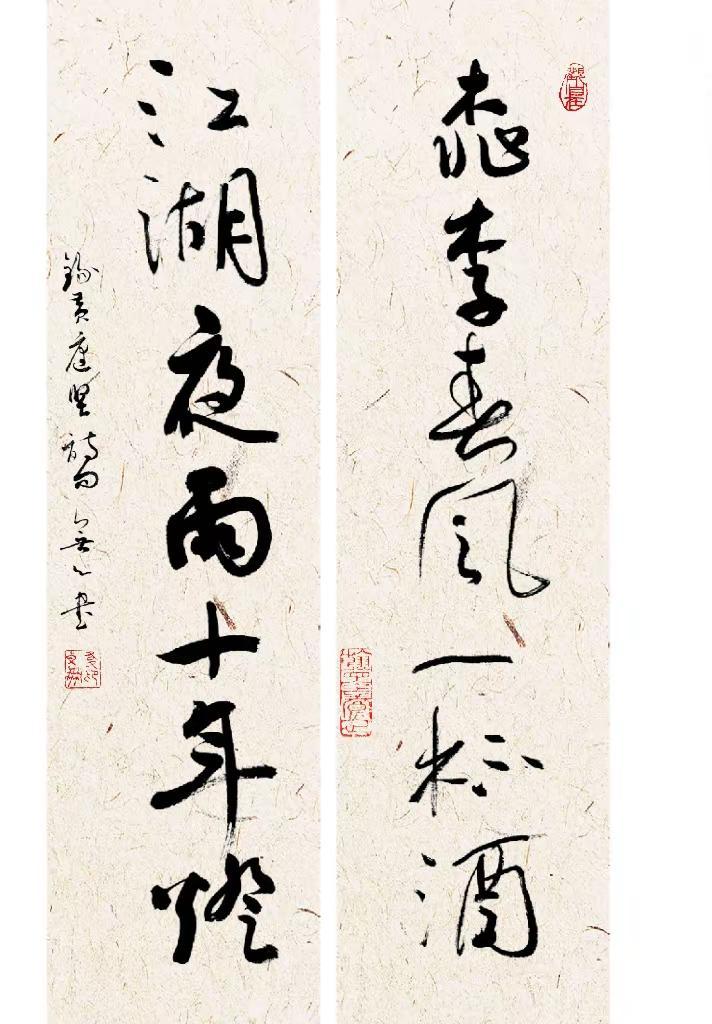 桃李春風一杯酒
江湖夜雨十年燈
錄黃庭堅詩句